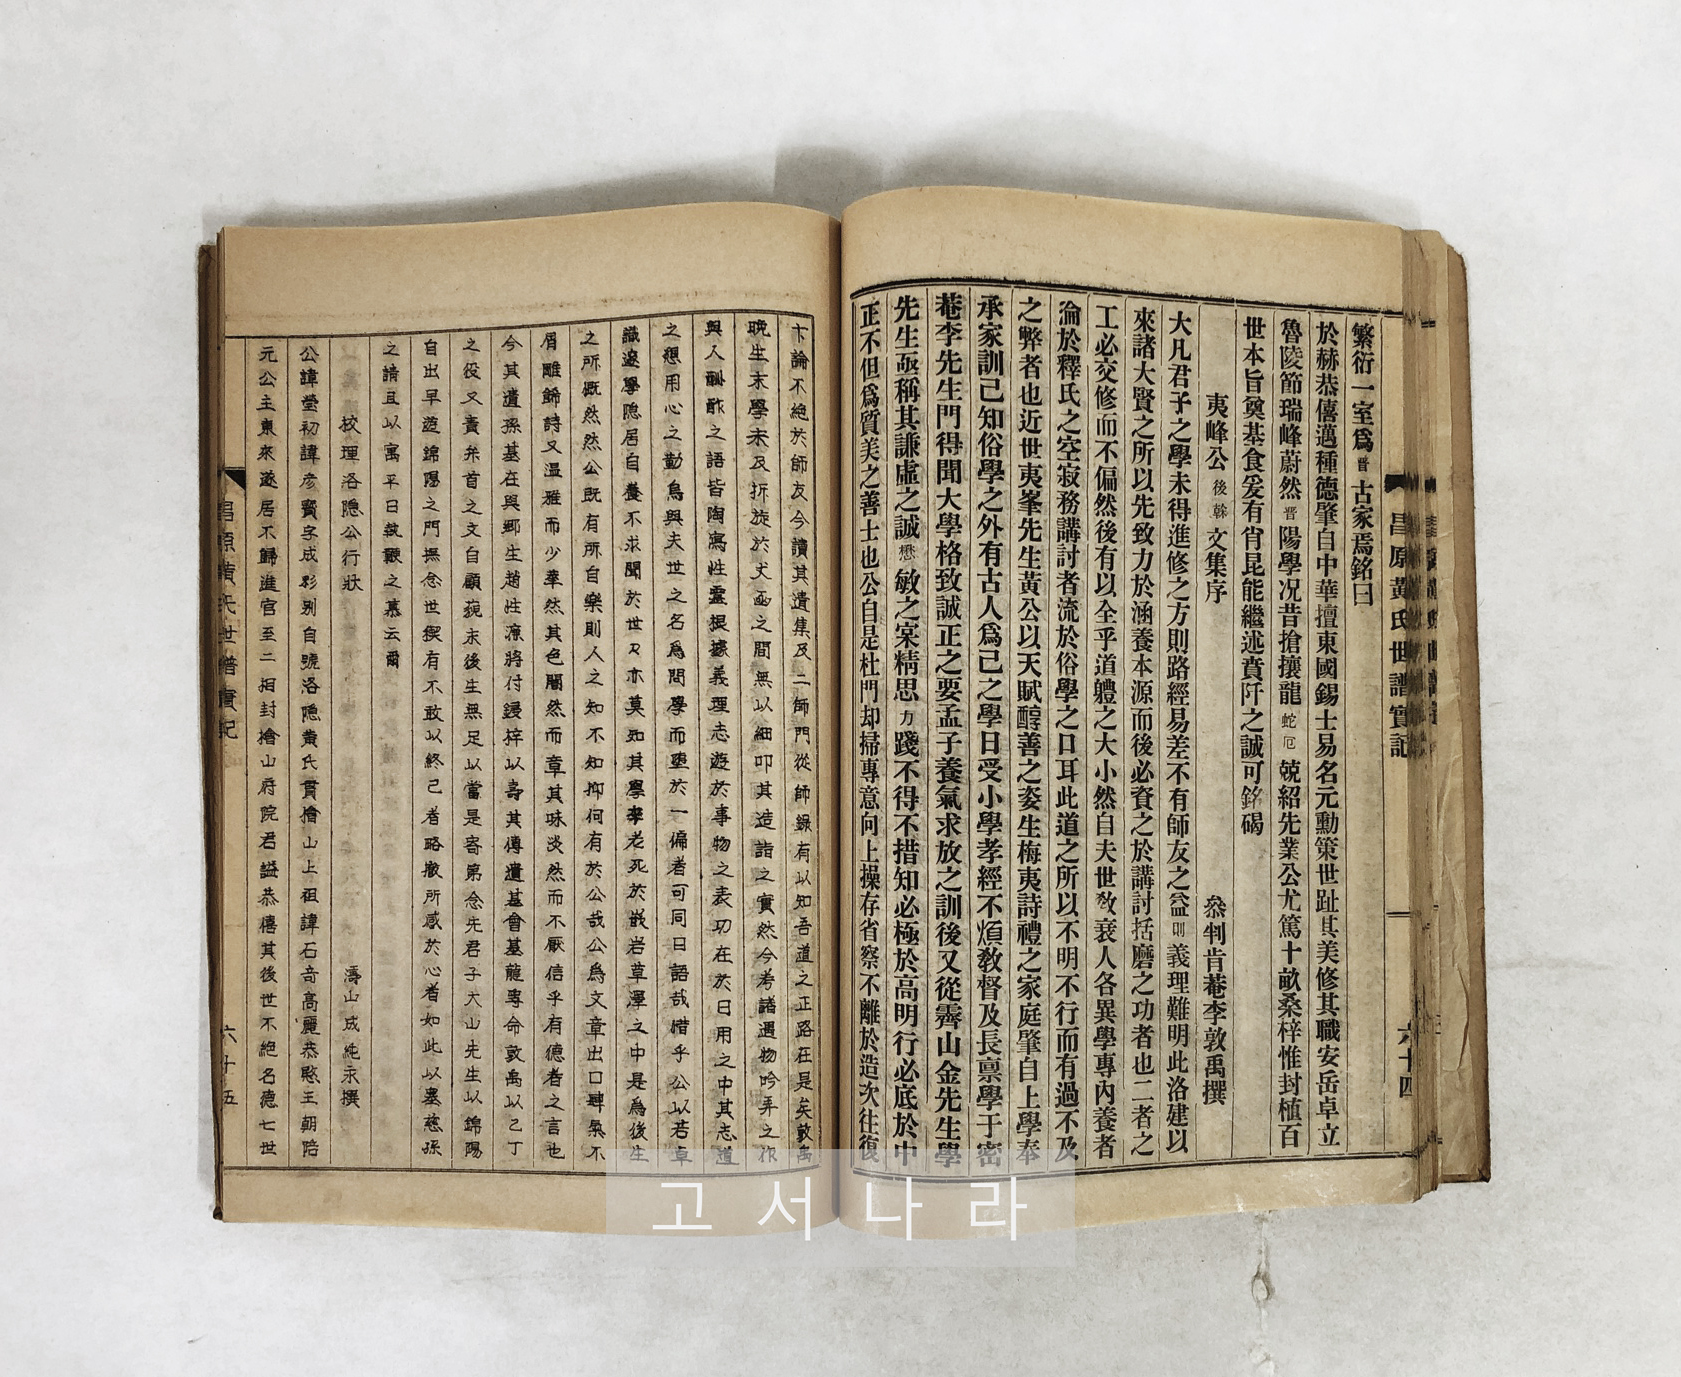 昌原黃氏世譜實記
六十四
繁衍一室爲晋古家焉銘曰
於赫恭僖邁種德肇自中華擅東國錫士易名元勳策世趾其美修其職安岳卓立
魯陵節瑞峰蔚然晋陽學况昔搶攘龍蛇厄兢紹先業公尤篤十畝桑梓惟封植百
世本旨奠基食爰有肖昆能繼述賁阡之誠可銘碣
夷峰公後榦文集序
叅判肯菴李敦禹撰
大凡君子之學未得進修之方則路經易差不有師友之益則義理難明此洛建以
來諸大賢之所以先致力於涵養本源而後必資之於講討括磨之功者也二者之
工必交修而不偏然後有以全乎道軆之大小然自夫世敎衰人各異學專內養者
淪於釋氏之空寂務講討者流於俗學之口耳此道之所以不明不行而有過不及
之弊者也近世夷峯先生黃公以天賦醇善之姿生梅夷詩禮之家庭肇自上學奉
承家訓己知俗學之外有古人爲己之學日受小學孝經不煩敎督及長禀學于密
菴李先生門得聞大學格致誠正之要孟子養氣求放之訓後又從霽山金先生學
先生亟稱其謙虛之誠懋敏之寀精思力踐不得不措知必極於高明行必底於中
正不但爲質美之善士也公自是杜門却掃專意向上操存省察不離於造次往復
卞論不絶於師友今讀其遺集及二師門從師錄有以知吾道之正路在是矣敦禹
晩生末學未及折旋於丈函之間無以細叩其造詣之實然今考諸遇物吟弄之作
與人酬酢之語皆陶寫性靈根據義理志遊於事物之表功在於日用之中其志道
之穩用心之勤烏與夫世之名爲問學而墮於一偏者可同日語哉惜乎公以若卓
識邃學隱居自養不求聞於世又亦莫知其學卒老死於嵌岩草澤之中是爲後生
之所慨然然公旣有所自樂則人之知不知抑何有於公哉公爲文章出口肆氣不
屑雕篩詩又溫雅而少華然其色闇然而章其味淡然而不厭信乎有德者之言也
今其遺孫基在與鄕生趙性濂將付鋟梓以壽其傳遺基會基龍專命敦禹以乙丁
之役又責弁首之文自顧藐末後生無足以當是寄第念先君子大山先生以錦陽
自出早遊錦陽之門撫念世契有不敢以終己者略撤所感於心者如此以塞慈孫
之請且以寓平日執鞭之慕云爾
校理洛隱公行狀
濤山成純永撰
公諱瑩初諱彦賓字成彩别自號洛隱黃氏貫檜山上祖諱石奇高麗恭愍王朝陪
元公主東來遂居不歸進官至二相封檜山府院君諡恭僖其後世不絶名德七世
昌原黃氏世譜實記
六十五
고서나라